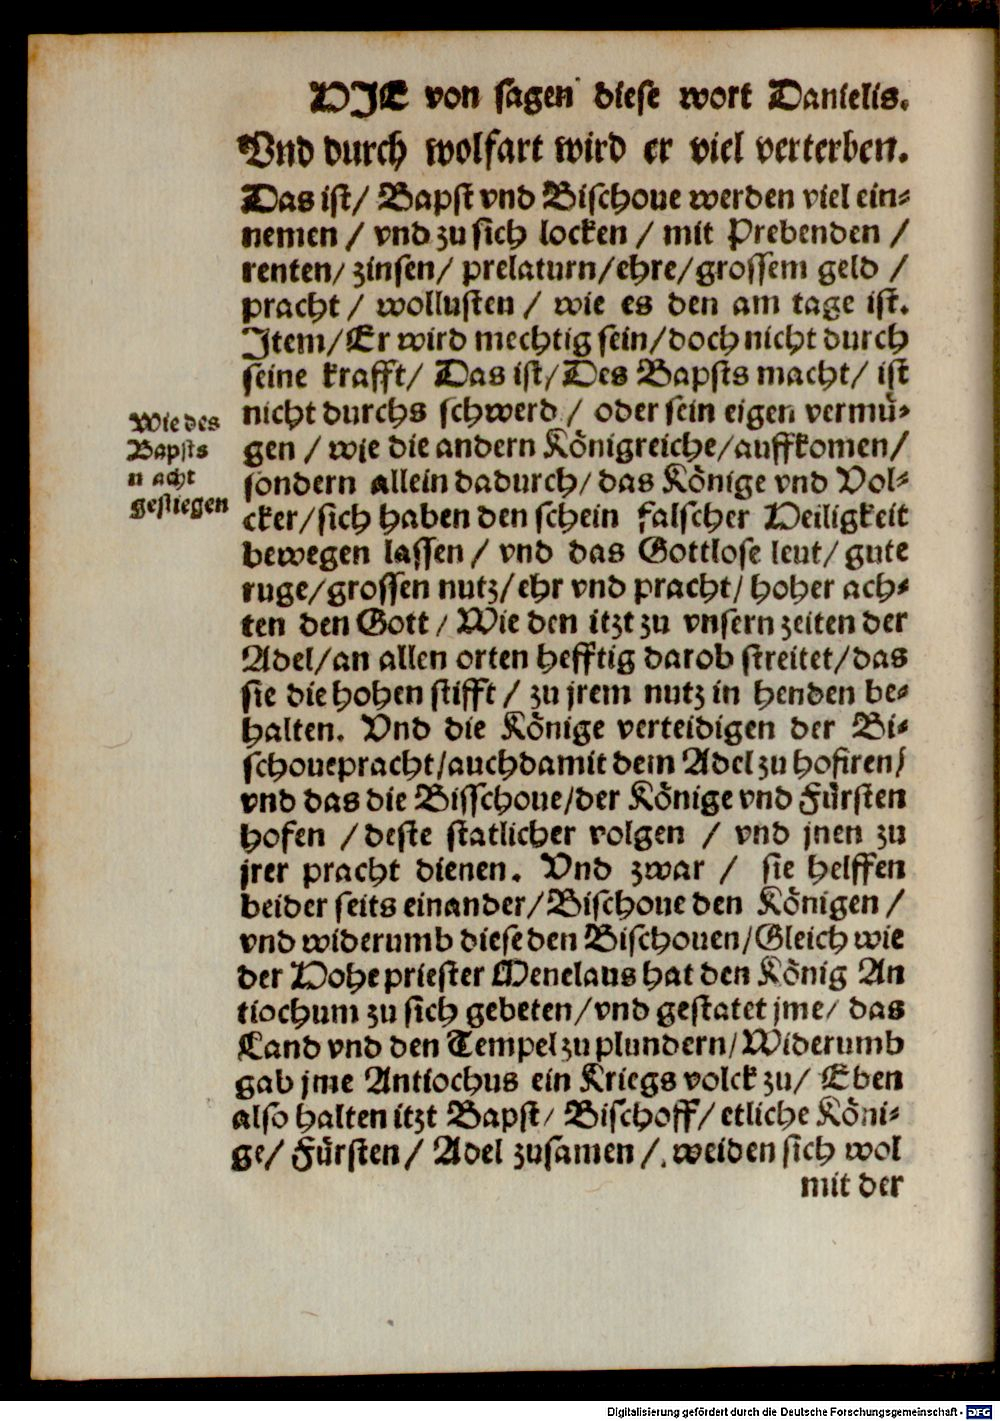 HJE von sagen diese wort Danielis.
Vnd durch wolfart wird er viel verterben.
Das ist/ Bapst vnd Bischoue werden viel ein⸗
nemen / vnd zu sich locken / mit Prebenden /
renten/ zinsen/ prelaturn/ehre/grossem geld /
pracht / wollusten / wie es den am tage ist.
Jtem/Er wird mechtig sein/doch nicht durch
seine krafft/ Das ist/Des Bapsts macht/ ist
nicht durchs schwerd / oder sein eigen vermü⸗
gen / wie die andern Königreiche/auffkomen/
sondern allein dadurch/das Könige vnd Vol⸗
cker/sich haben den schein falscher Heiligkeit
bewegen lassen / vnd das Gottlose leut/ gute
ruge/grossen nutz/ehr vnd pracht/ hoher ach⸗
ten den Gott / Wie den itzt zu vnsern zeiten der
Adel/an allen orten hefftig darob streitet/das
sie die hohen stifft / zu jrem nutz in henden be⸗
halten. Vnd die Könige verteidigen der Bi⸗
schouepracht/auchdamit dem Adel zu hofiren/
vnd das die Bisschoue/der Könige vnd Fürsten
hofen / deste statlicher volgen / vnd jnen zu
jrer pracht dienen. Vnd zwar / sie helffen
beider seits einander/Bischoue den Königen /
vnd widerumb diese den Bischouen/Gleich wie
der Hohe priester Menelaus hat den König An
tiochum zu sich gebeten/vnd gestatet jme/ das
Land vnd den Tempel zu plundern/Widerumb
gab jme Antiochus ein Kriegs volck zu/ Eben
also halten itzt Bapst/ Bischoff/ etliche Köni⸗
ge/ Fürsten/ Adel zusamen /. weiden sich wol
mit der
Wie des
Bapsts
macht
gestiegen
Digitalisierung gefördert durch die Deutsche Forschungsgemeinschaft - DFG